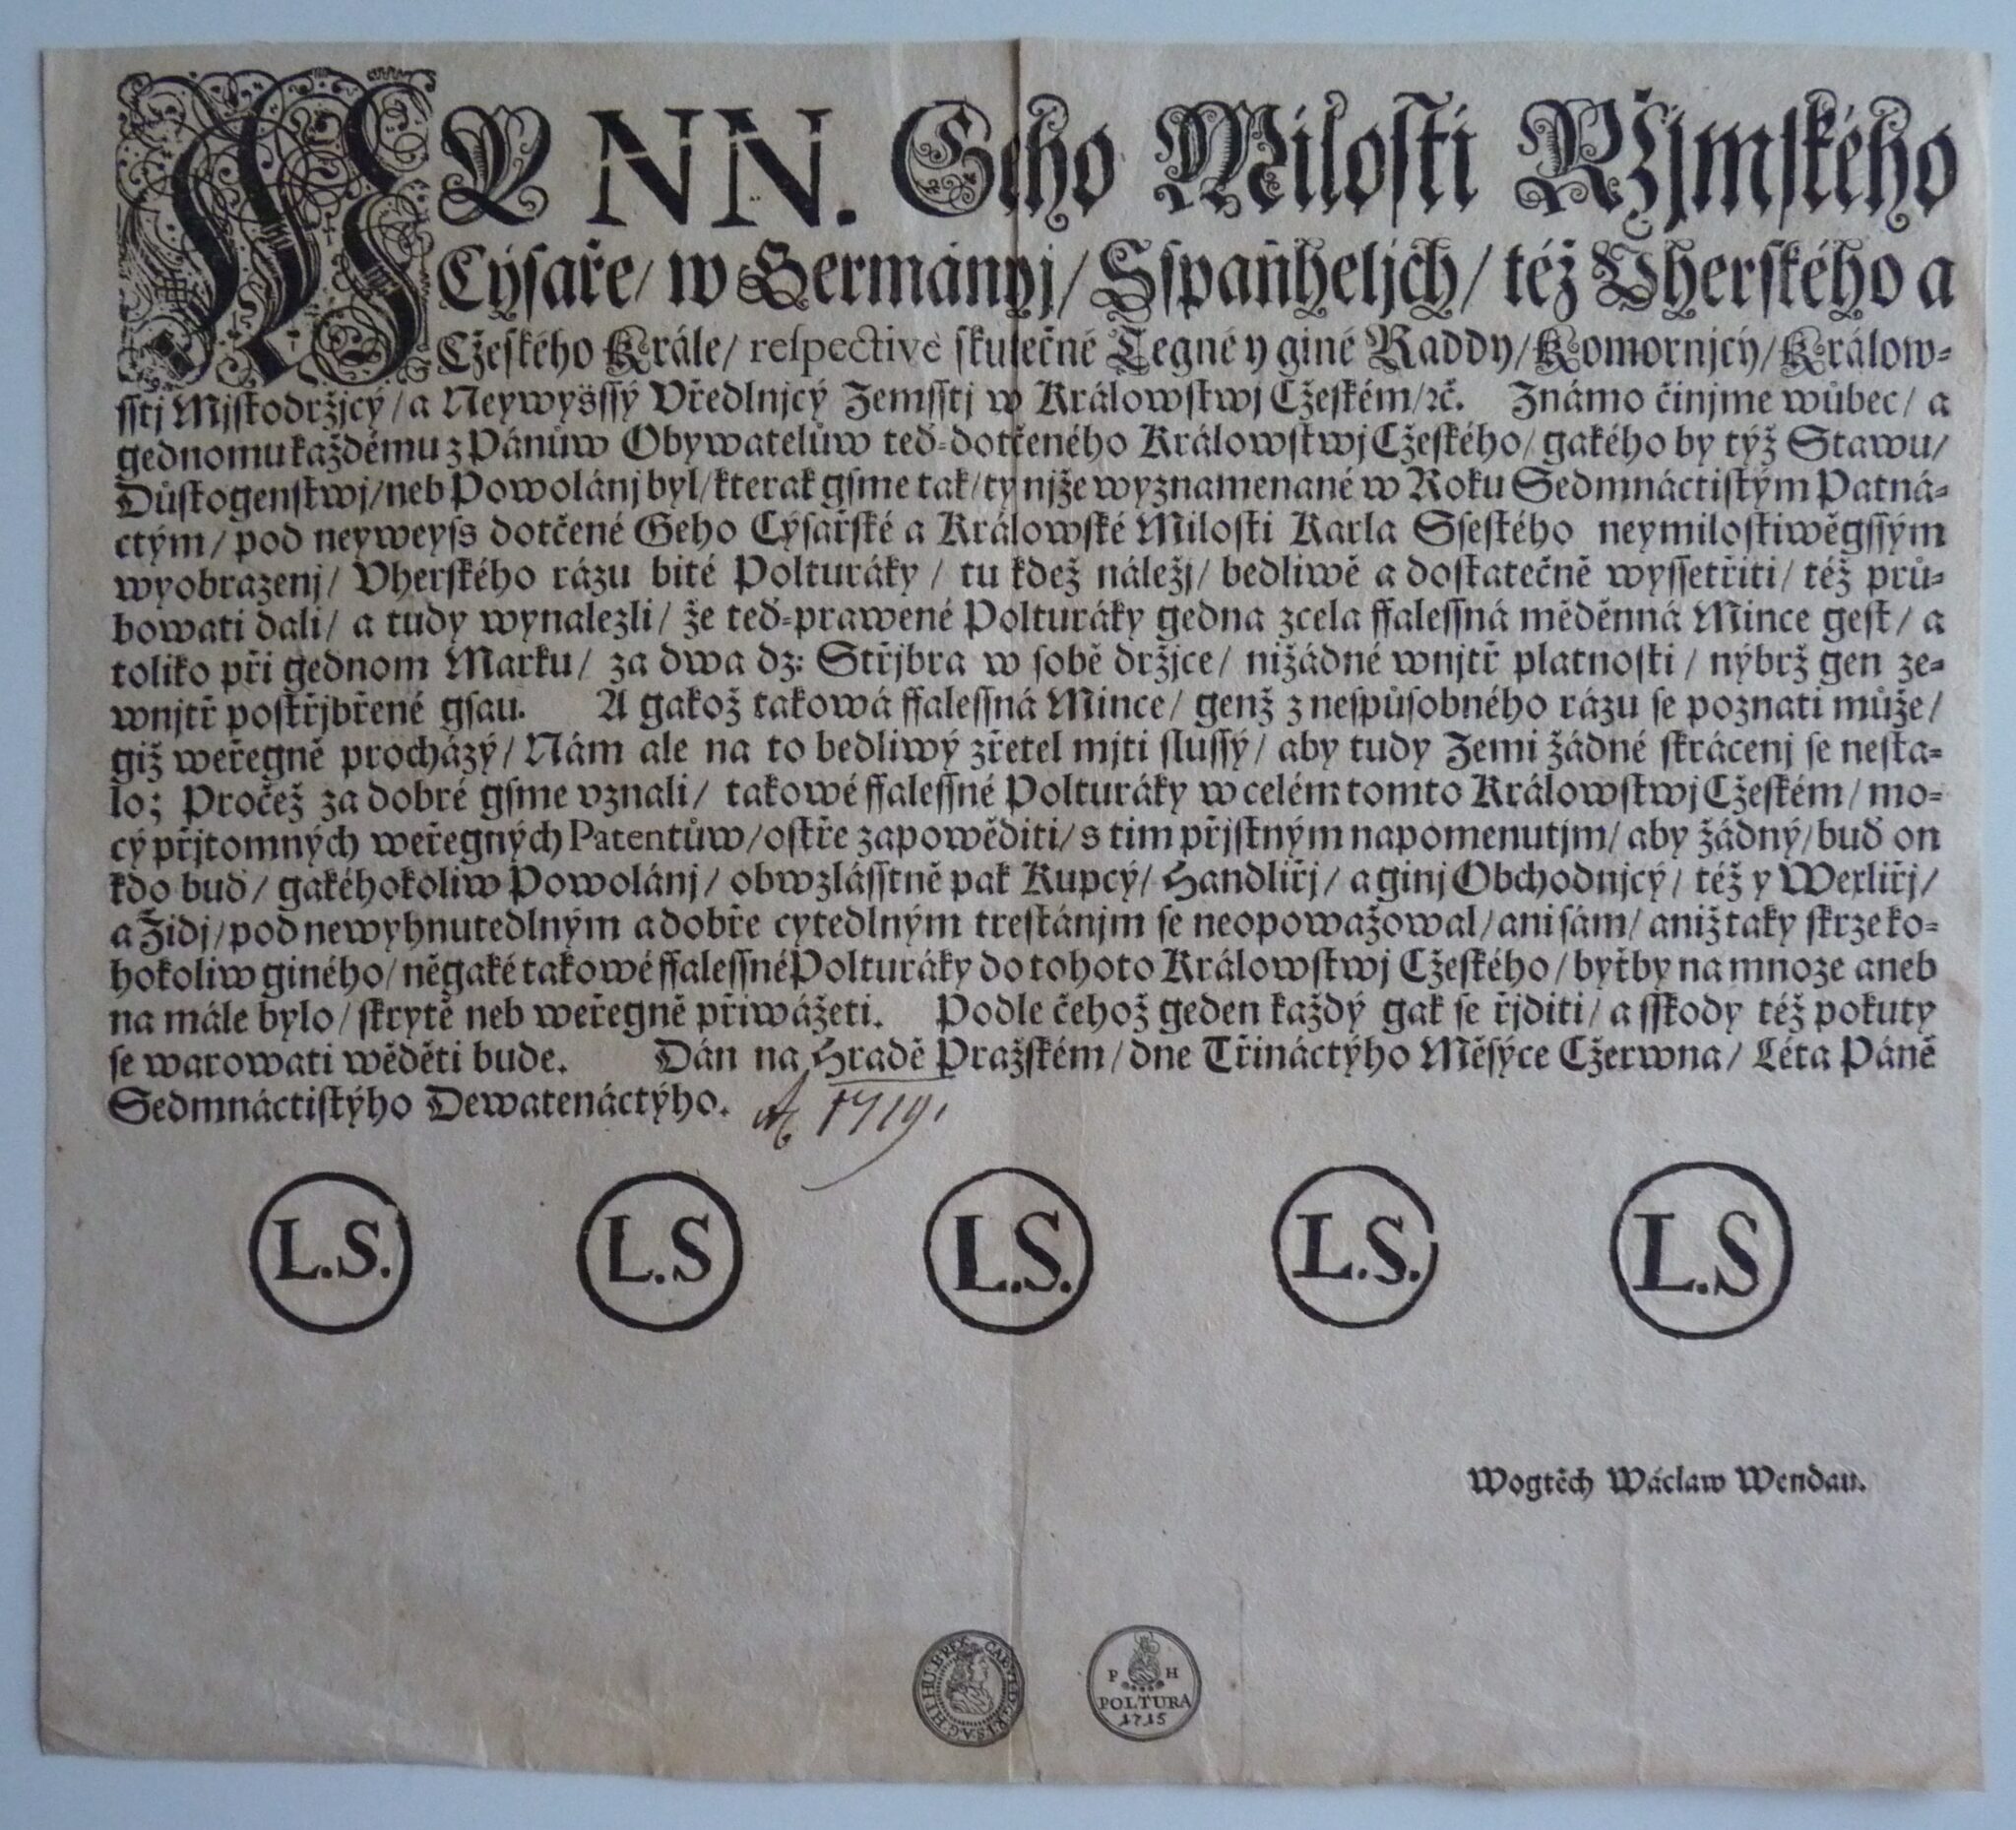 WY NN. Geho Milosti Ržjmského
Cýsaře/ w Germányj/ Sspaňheljch/ též Vherského a
Cžeského Krále/ respectivè skutečné Tegné y giné Raddy/ Komornjcý/ Králow-
sstj Mjstodržjcý/ a Neywyšssý Vředlnjcý Zemsstj w Králowstwj Cžeském/ ꝛč. Známo činjme wůbec/ a
gednomu každému z Pánůw Obywatelůw teď-dotčeného Králowstwj Cžeského/ gakého by týž Stawu/
Důstogenstwj/ neb Powolánj byl/ kterak gsme tak/ ty njže wyznamenané w Roku Sedmnáctistým Patná-
ctým/ pod neyweyss dotčené Geho Cýsařské a Králowské Milosti Karla Ssestého neymilostiwěgssým
wyobrazenj/ Vherského rázu bité Polturáky/ tu kdež náležj/ bedliwě a dostatečně wyssetřiti/ též prů-
bowati dali/ a tudy wynalezli/ že teď-prawené Polturáky gedna zcela ffalessná měděnná Mince gest/ a
toliko při gednom Marku/ za dwa dz: Střjbra w sobě držjce/ nižádné wnjtř platnosti/ nýbrž gen ze-
wnjtř postřjbřené gsau. A gakož takowá ffalessná Mince/ genž z nespůsobného rázu se poznati může/
giž weřegně procházý/ Nám ale na to bedliwý zřetel mjti slussý/ aby tudy Zemi žádné skrácenj se nesta-
lo; Pročež za dobré gsme vznali/ takowé ffalessné Polturáky w celém tomto Králowstwj Cžeském/ mo-
cý přjtomných weřegných Patentůw/ ostře zapowěditi/ s tim přjstným napomenutjm/ aby žádný/ buď on
kdo buď/ gakéhokoliw Powolánj/ obwzlásstně pak Kupcý/ Handliřj/ a ginj Obchodnjcý/ též y Wexliřj/
a Židj/ pod newyhnutedlným a dobře cytedlným trestánjm se neopowažowal/ ani sám/ aniž taky skrze ko-
hokoliw giného/ něgaké takowé ffalessné Polturáky do tohoto Králowstwj Cžeského/ byťby na mnoze aneb
na mále bylo/ skrytě neb weřegně přiwážeti. Podle čehož geden každý gak se řjditi/ a sskody též pokuty
se warowati wěděti bude. Dán na Hradě Pražském/ dne Třináctýho Měsýce Cžerwna/ Léta Páně
Sedmnáctistýho Dewatenáctýho. 1719.
L.S. L.S L.S. L.S. L.S
Wogtěch Wáclaw Wendau.
P H
POLTURA
1715